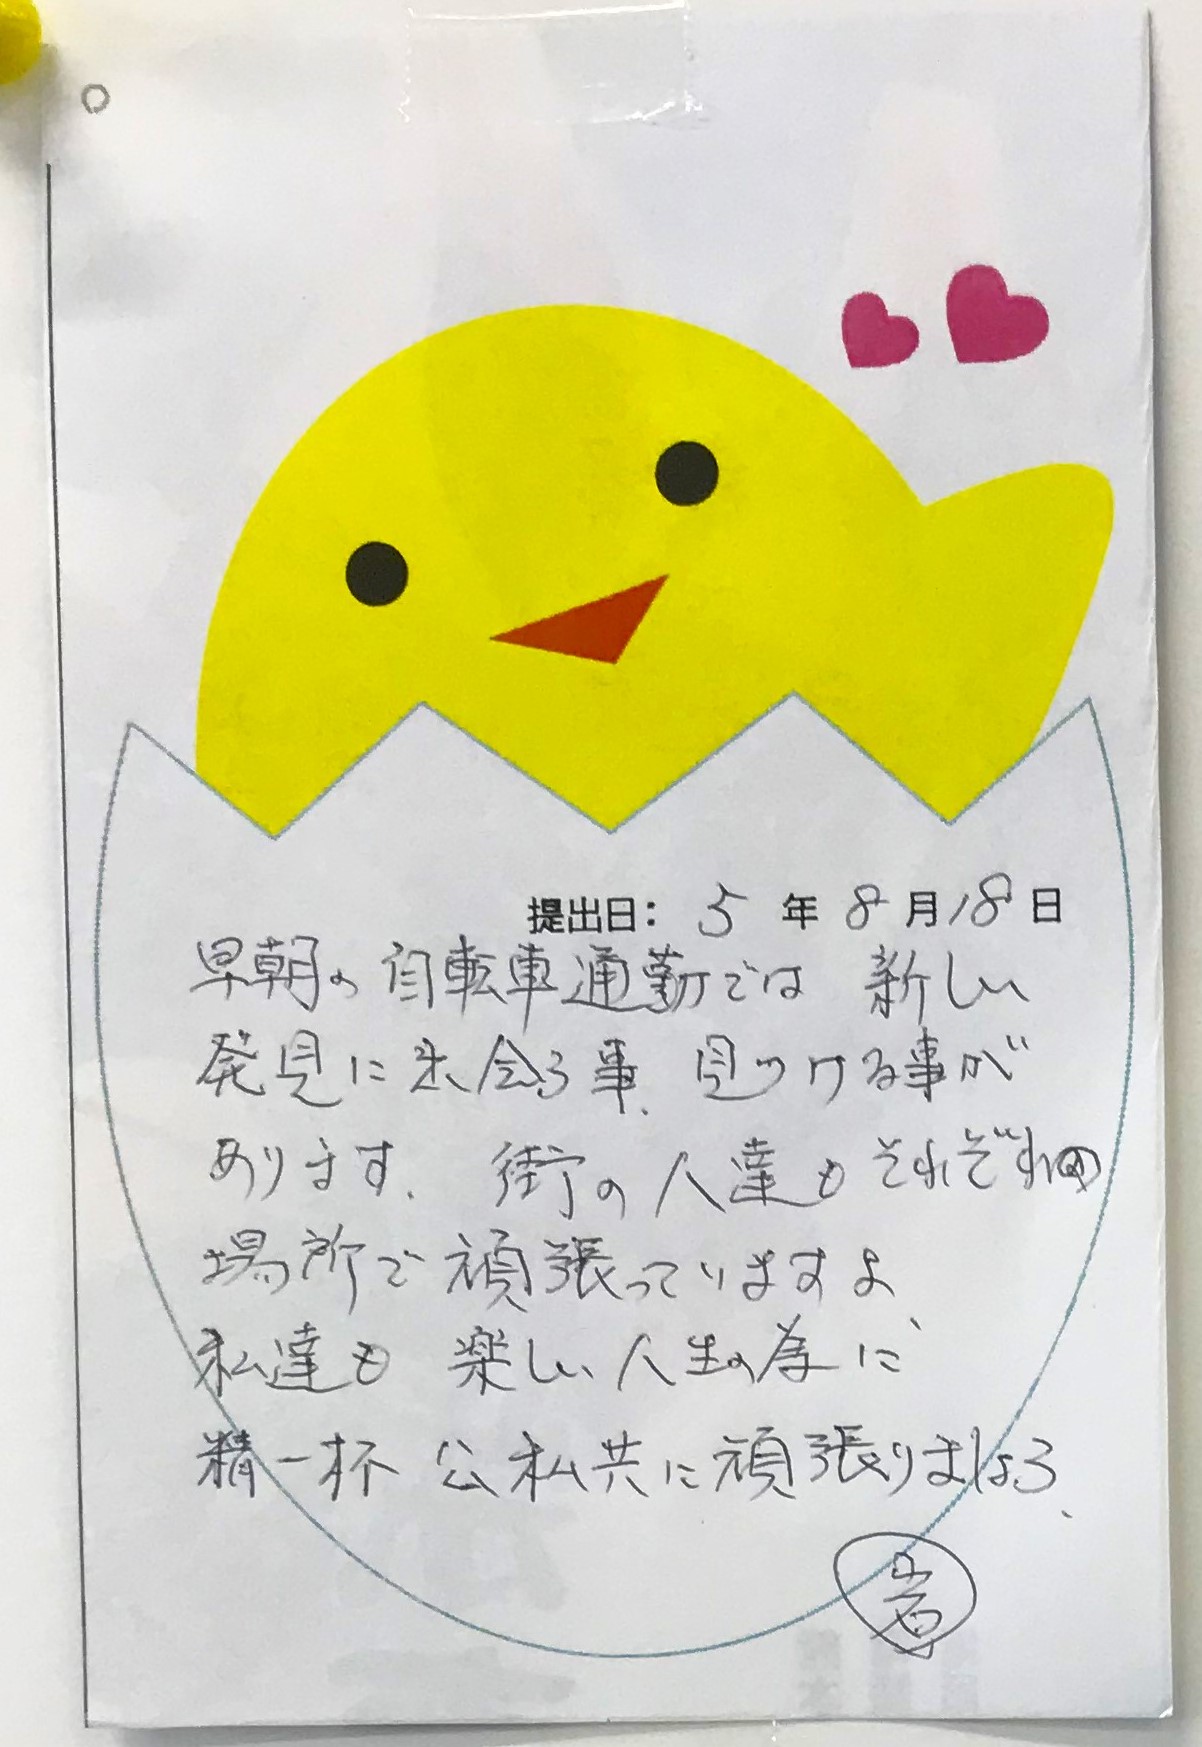 提出日： 5 年 8 月 18 日
早朝の自転車通勤では 新しい
発見に出会う事、見つける事が
あります、 街の人達も それぞれの
場所で 頑張っていますよ
私達も 楽しい人生の為に
精一杯 公私共に頑張りましょう、